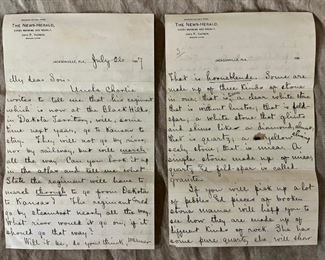 THE NEWS-HERALD,
JACKSONVILLE, ILL., July 20, 7
My dear Son:
Uncle Charlie
writes to tell me that his regiment
which is now at the Black Hills,
in Dakota Territory, will, some
time next year, go to Kansas to
stay. They will not go by river,
nor by railway, but will march
all the way. Can you look it up
in the atlas and tell me what
State the regiment will have to
march through to go from Dakota
to Kansas? The regiment could
go by steamboat nearly all the way.
What river would it go on, if it
should go that way?
Will it be, do you think,
THE NEWS-HERALD,
JACKSONVILLE, ILL.,
That is hornblende. Some are
made up of three kinds of stone
in one; that is a dear white stone
that is without luster, that is feld-
spar; a white stone that glints
and shines like a diamond,
that is quartz; a
stone, that is mica. By
simple stone made up of mica
quartz & feldspar is called
granite.
If you will pick up a lot
of pebbles and pieces of broken
stone mamma will help you to
see how they are made up of
different kinds of rock. She has
some pure quartz she will show